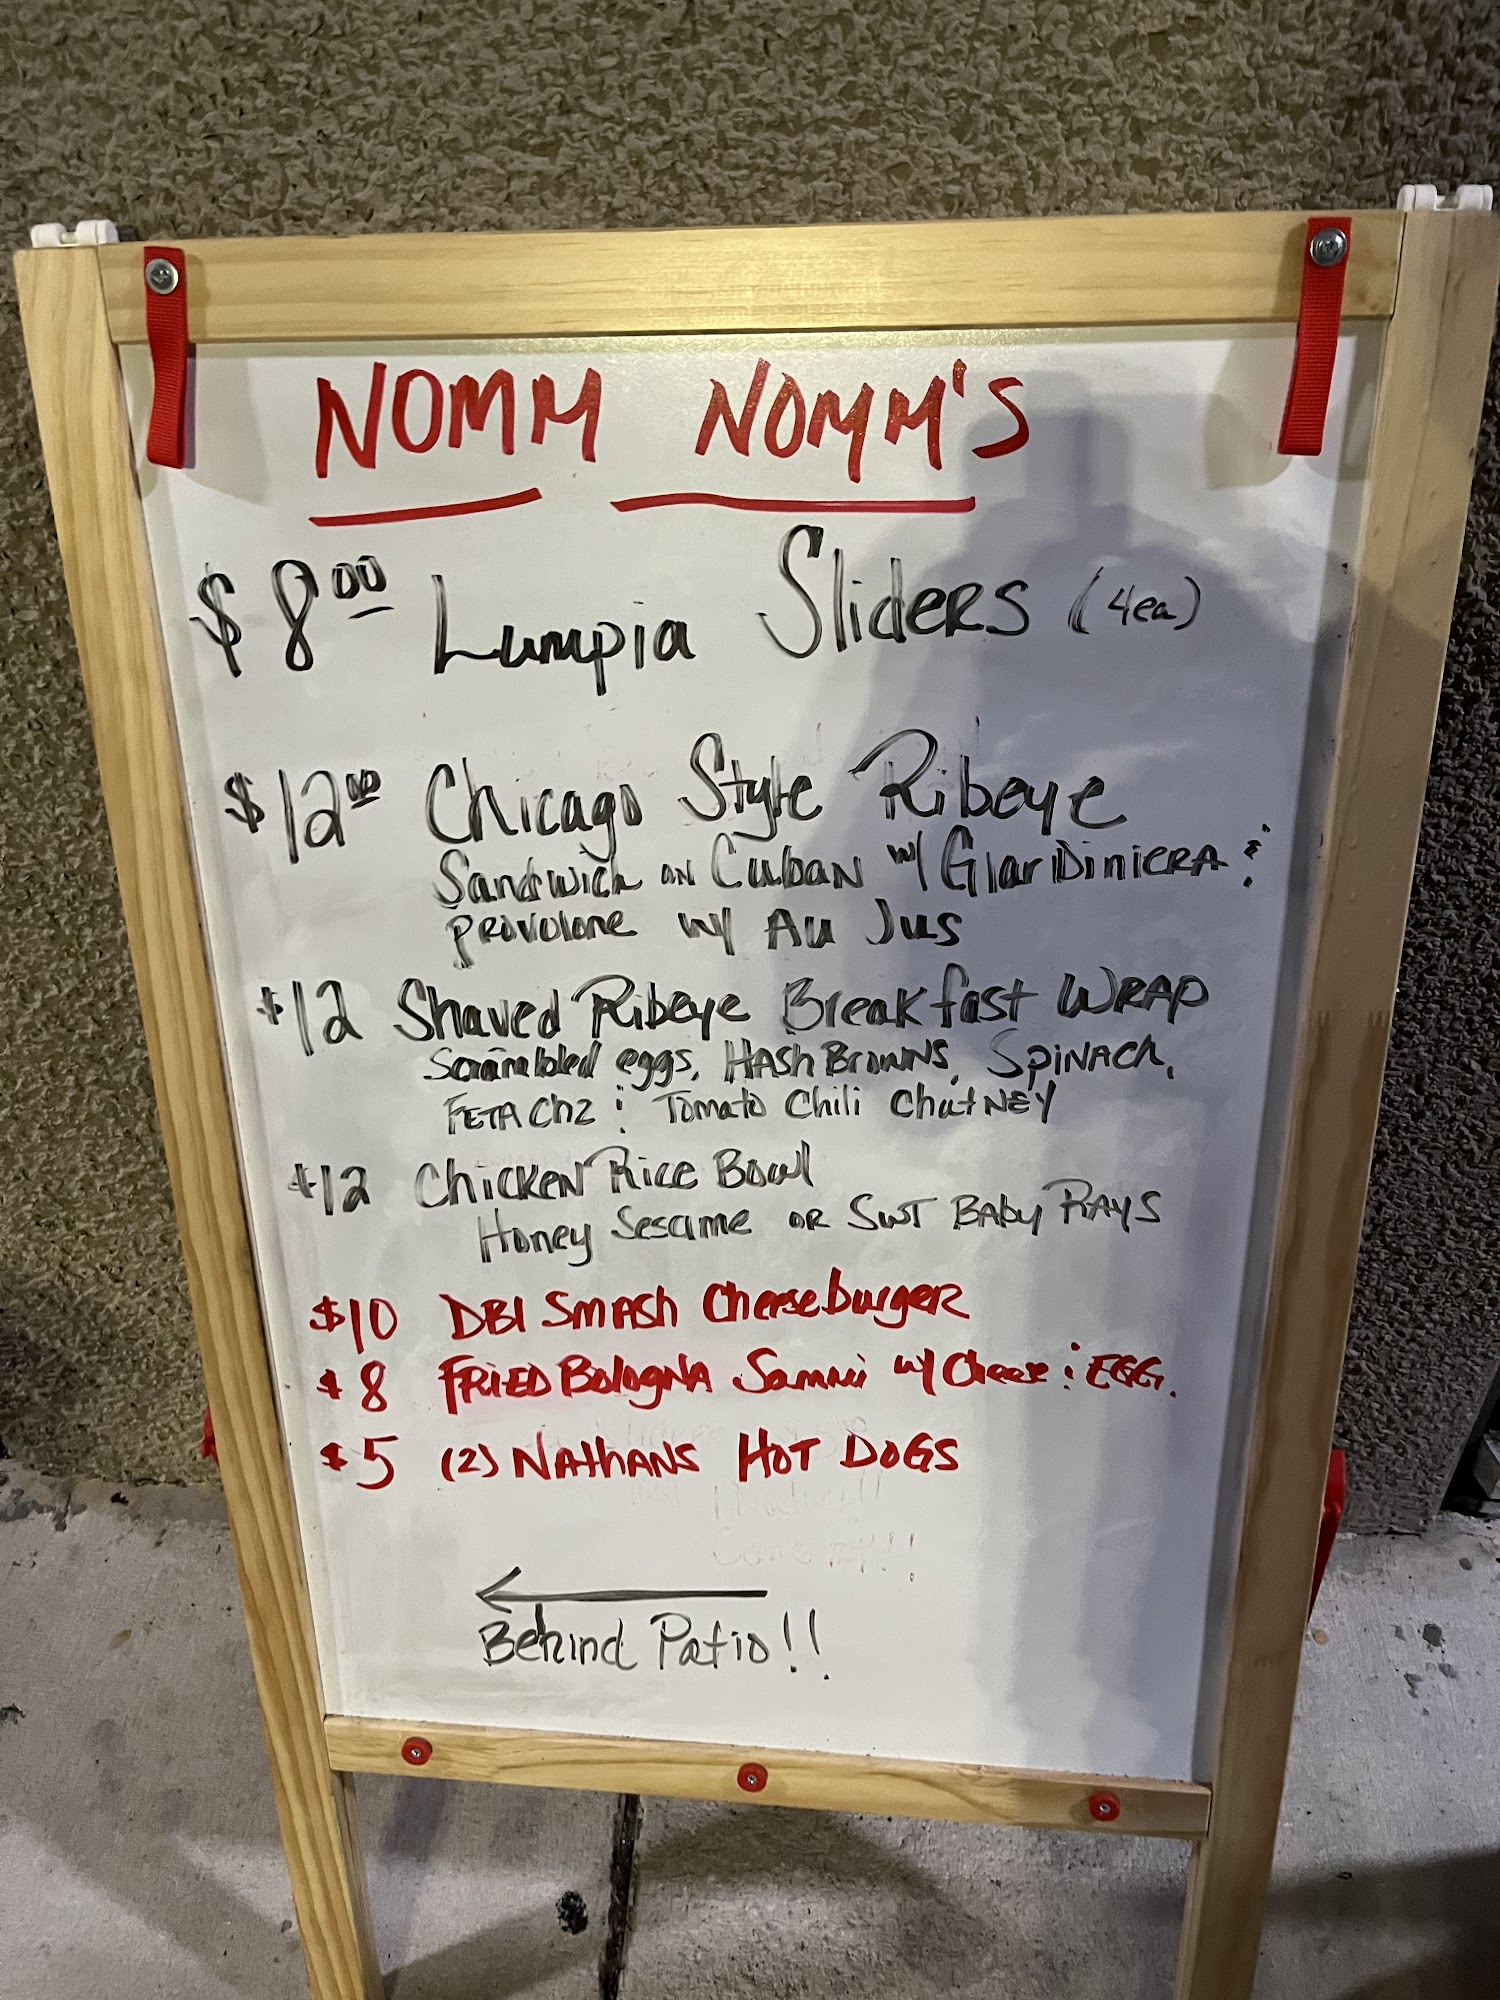 NOMM NOMM'S
$8.00 Lumpia Sliders (4ea)
$12.00 Chicago Style Ribeye
Sandwich on Cuban w/ Giardiniera &
provolone w/ Au Jus
$12 Shaved Ribeye Breakfast WRAP
Scrambled eggs, Hash Browns, Spinach,
FETA Chz & Tomato Chili Chutney
$12 Chicken Rice Bowl
Honey Sesame or SWT Baby Rays
$10 DBl Smash Cheeseburger
$8 Fried Bologna Sammi w/ Cheese & EGG.
$5 (2) Nathans HOT DOGS
←
Behind Patio!!